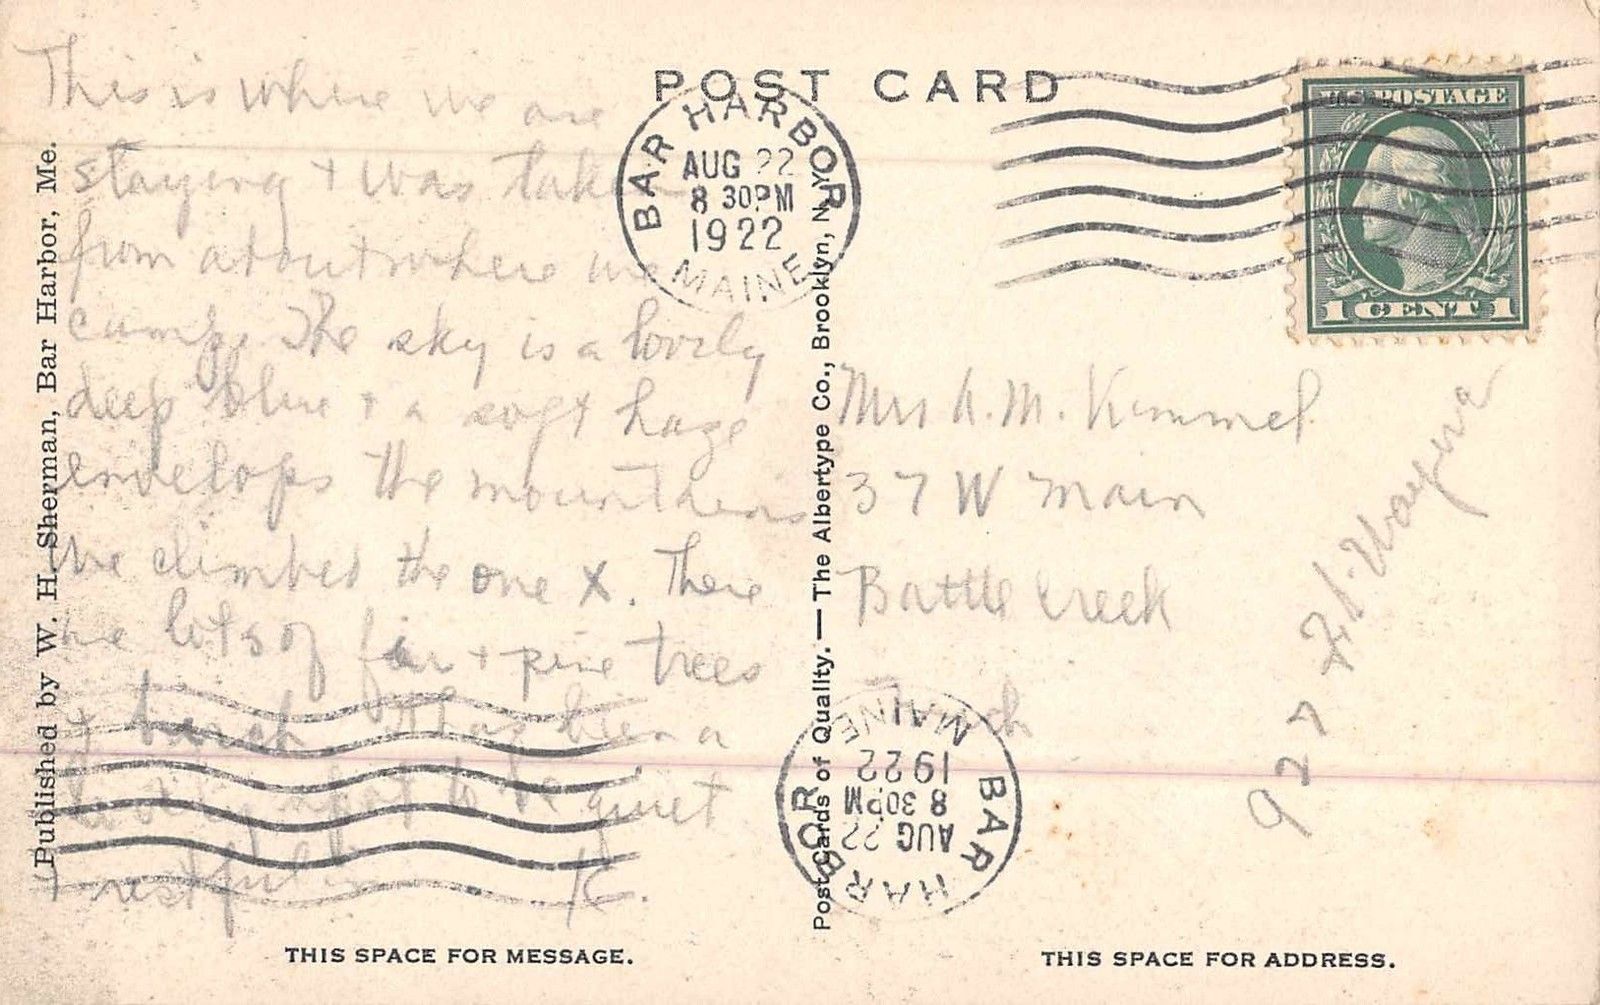 POST CARD
This is where we are
staying + was taken
from about where we
camp. The sky is a lovely
deep blue + a soft haze
envelops the mountains
We climbed the one X. There
are lots of fir + pine trees
+ birch It has been a
lovely spot to be quiet
+ restful in K.
THIS SPACE FOR MESSAGE.
Published by W. H. Sherman, Bar Harbor, Me.
Post Cards of Quality. — The Albertype Co., Brooklyn, N.Y.
BAR HARBOR
AUG 22
8 30PM
1922
MAINE
U.S. POSTAGE
1 CENT 1
Mrs A. M. Kimmel
37 W Main
Battle Creek
Mich
927 Ft. Wayne
BAR HARBOR
AUG 22
8 30PM
1922
MAINE
THIS SPACE FOR ADDRESS.